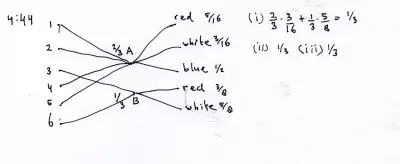 4:44
1
2
3
4
5
6
2/3 A
1/3 B
red 5/16
white 3/16
blue 1/2
red 3/8
white 5/8
(i) 2/3 · 3/16 + 1/3 · 5/8 = 1/3
(ii) 1/3 (iii) 1/3